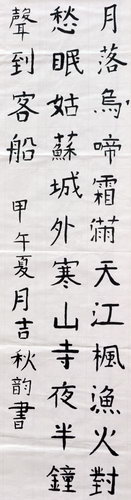 月落烏啼霜滿天江楓漁火對
愁眠姑蘇城外寒山寺夜半鐘
聲到客船 甲午夏月吉秋韵書